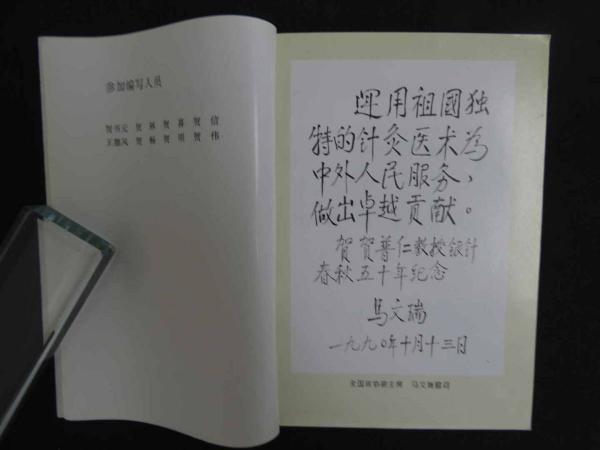 参加编写人员
贺书元 贺 林 贺 喜 贺 信
王德凤 贺 畅 贺 明 贺 伟
运用祖國独
特的针灸医术为
中外人民服务，
做出卓越贡献。
贺贺普仁教授银针
春秋五十年纪念
马文瑞
一九九〇年十月十三日
全国政协副主席 马文瑞题词